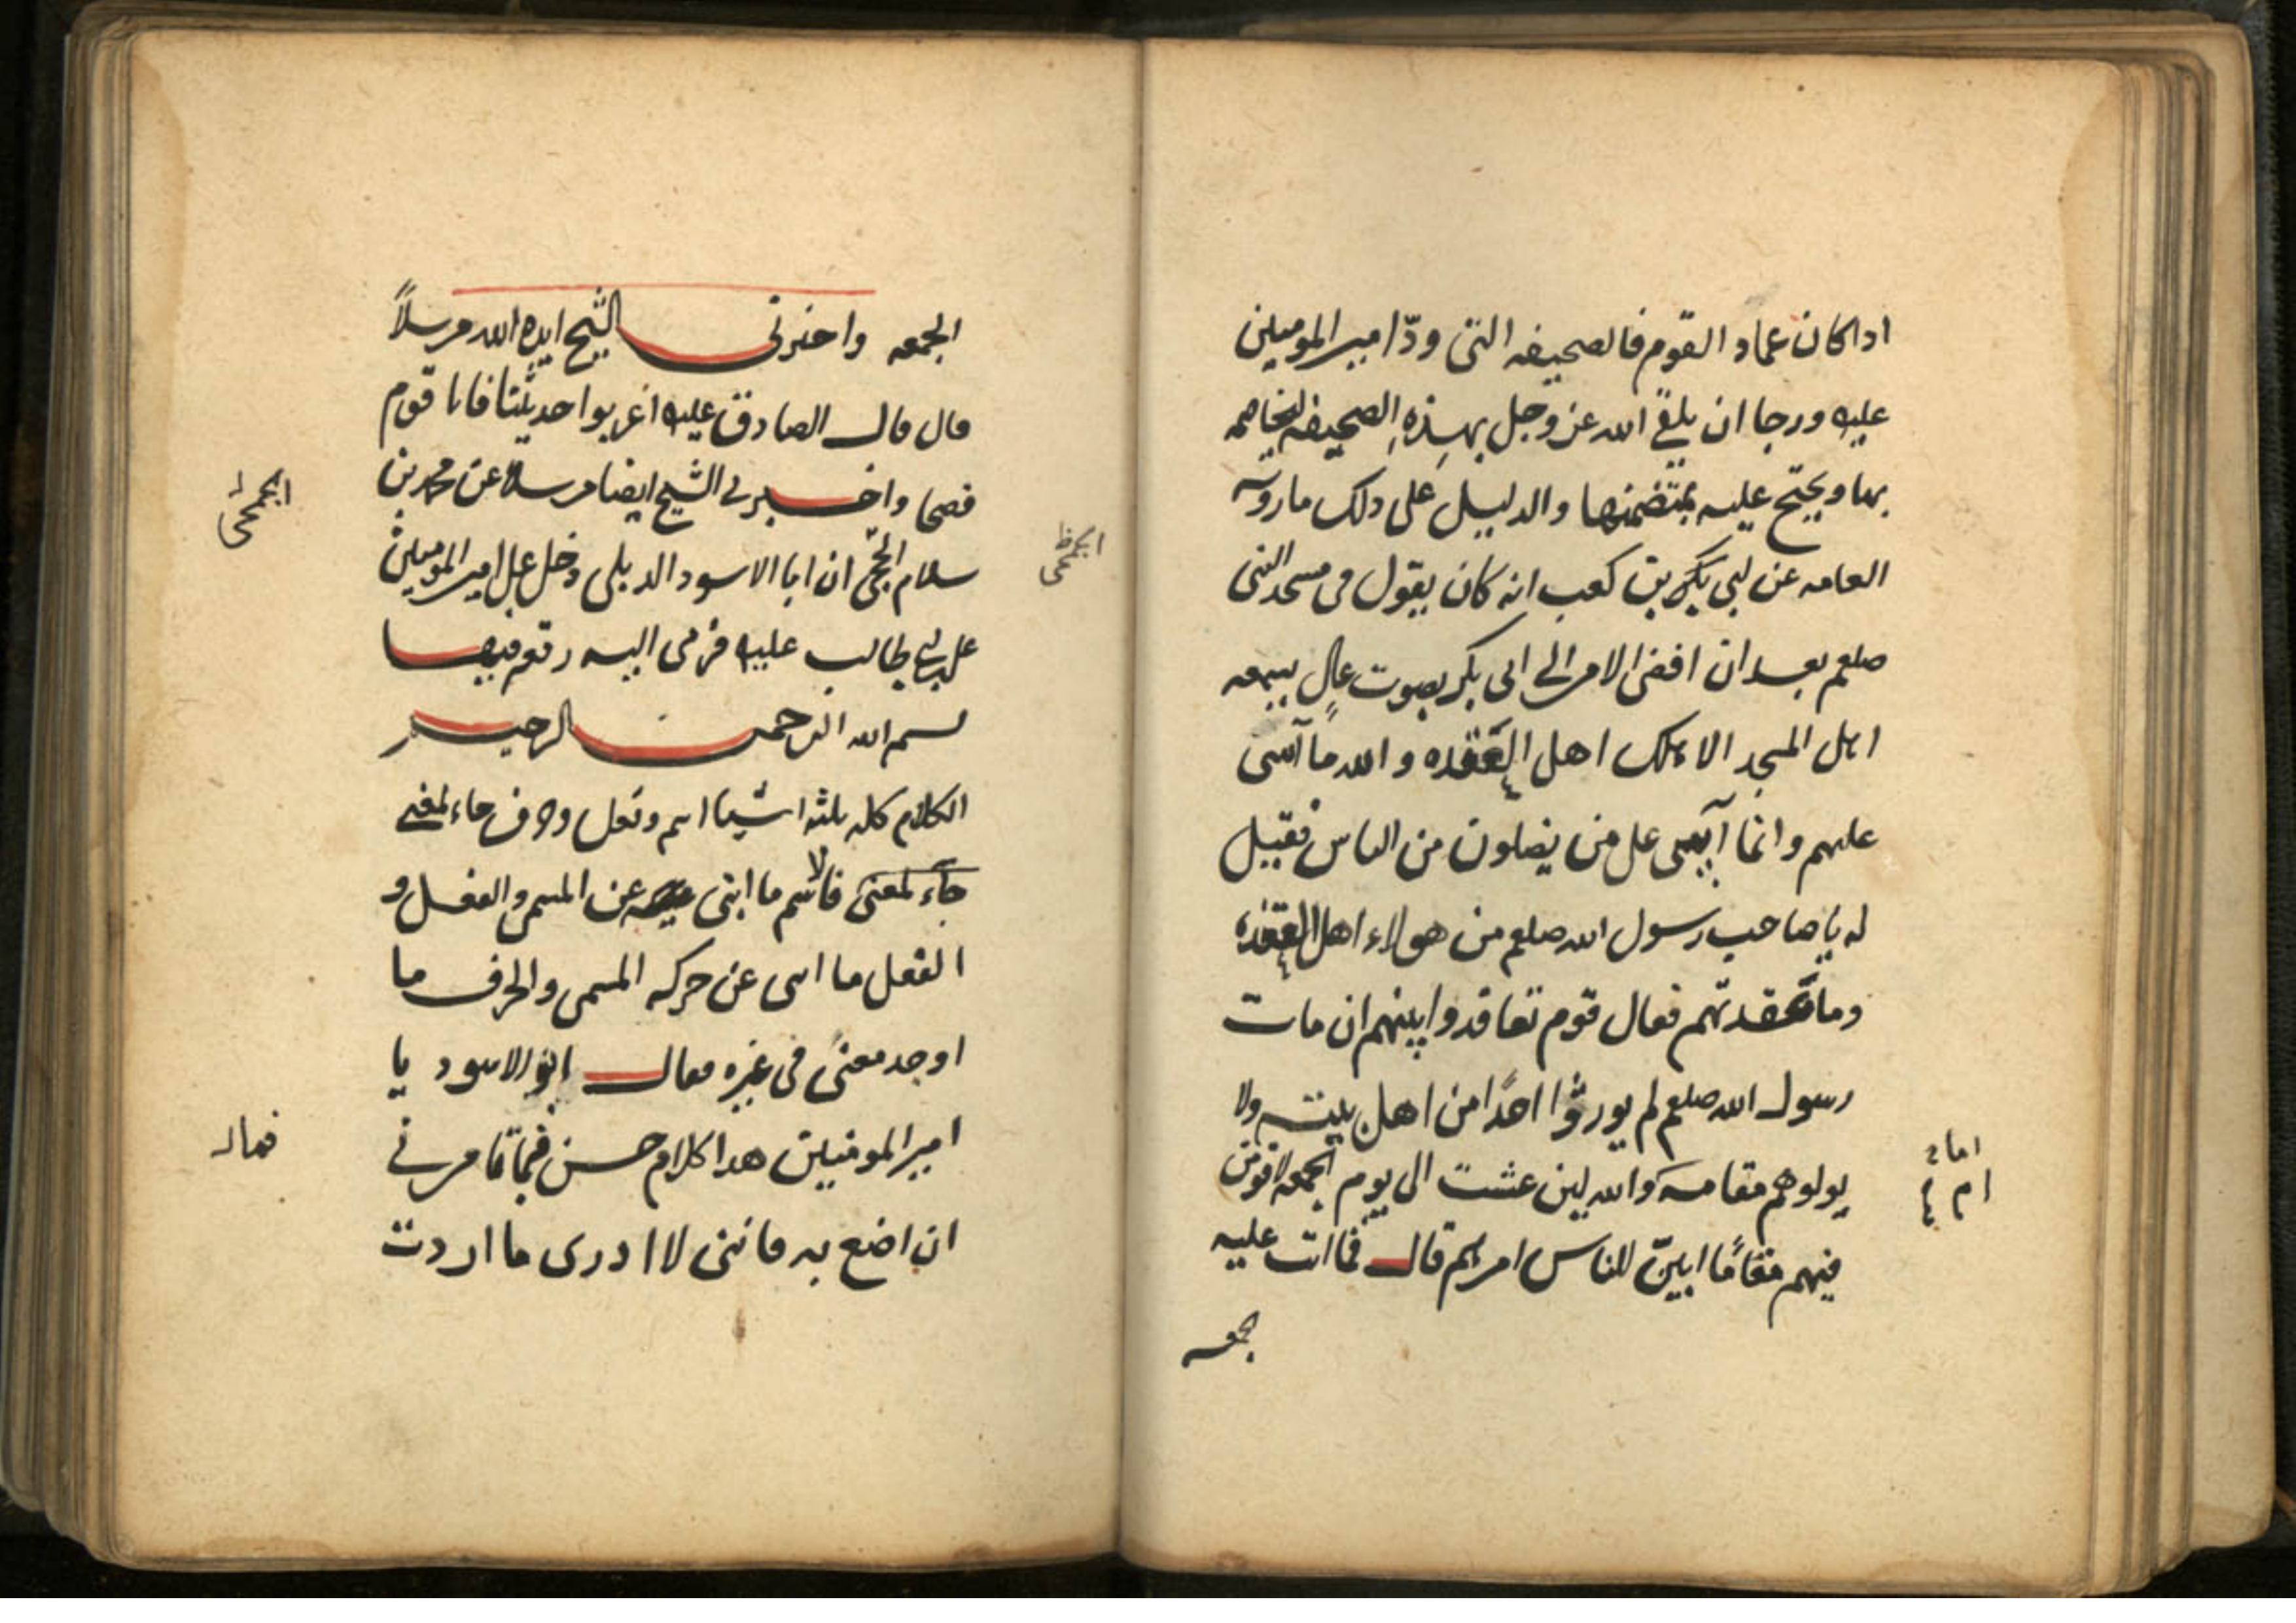 اذا كان عماد القوم فالصحيفه التى ودّ امير المومنين
عليه ورجا ان يلقى الله عز وجل بهذه الصحيفه ليخاصمه
بها ويحتج عليه بمتضمنها والدليل على ذلك ما روته
العامه عن ابى بكر بن كعب انه كان يقول فى مسجد النبى
صلعم بعد ان افضى الامر الى ابى بكر بصوت عالٍ يسمعه
اهل المسجد الا هلك اهل العقده والله ما آسى
عليهم وانما آسى على من يضلون من الناس فقيل
له يا صاحب رسول الله صلعم من هولاء اهل العقده
وما عقدتهم فقال قوم تعاقدوا بينهم ان مات
رسول الله صلعم لم يورثوا احدًا من اهل بيته ولا
يولوهم مقامه والله لين عشت الى يوم الجمعه لاقومن
فيهم مقامًا ابيّن للناس امرهم قال فما اتت عليه
الجمعه
الجمعه واخبرنى الشيخ ايده الله مرسلاً
قال قال الصادق عليه اعربوا حديثنا فانا قوم
فصحا واخبرنى الشيخ ايضا مرسلا عن محمد بن
سلام الجمحى ان ابا الاسود الديلى دخل على امير المومنين
على بن ابى طالب عليه فرمى اليه رقعه فيها
بسم الله الرحمن الرحيم
الكلام كله ثلثه اشيا اسم وفعل وحرف جاء لمعنى
جاء لمعنى فالاسم ما انبى عن المسمى والفعل و
الفعل ما انبى عن حركه المسمى والحرف ما
اوجد معنى فى غيره فقال ابو الاسود يا
امير المومنين هذا كلام حسن فما تامرنى
ان اضع به فاننى لا ادرى ما اردت
الجمحى
الجمحى
فقال